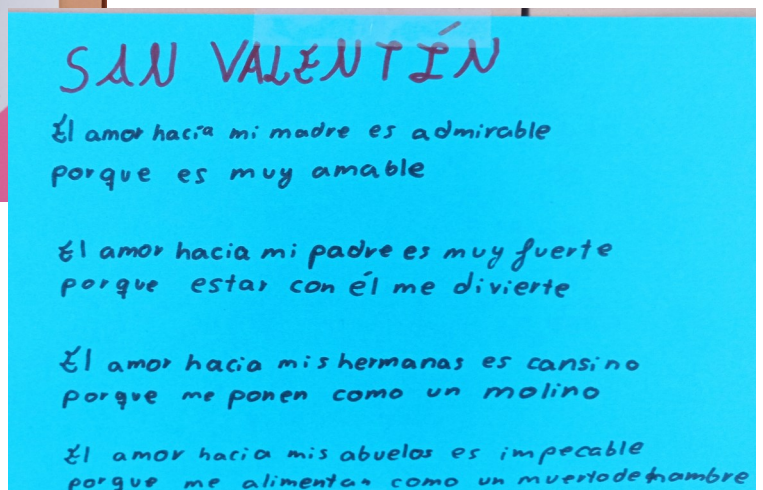 SAN VALENTÍN
El amor hacia mi madre es admirable
porque es muy amable
El amor hacia mi padre es muy fuerte
porque estar con él me divierte
El amor hacia mis hermanas es cansino
porque me ponen como un molino
El amor hacia mis abuelos es impecable
porque me alimentan como un muerto de hambre